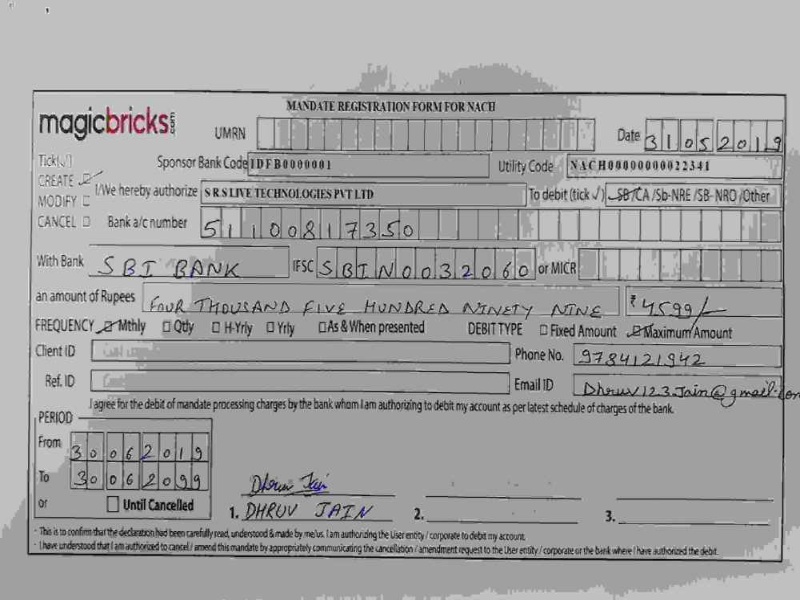 magicbricks.com
MANDATE REGISTRATION FORM FOR NACH
UMRN Date 31052019
Tick(✓) Sponsor Bank Code IDFB0000001 Utility Code NACH00000000022341
CREATE ☑ I/We hereby authorize SRS LIVE TECHNOLOGIES PVT LTD To debit (tick ✓) SB/CA/Sb-NRE/SB-NRO/Other
MODIFY ☐
CANCEL ☐ Bank a/c number 51100817350
With Bank SBI BANK IFSC SBIN0032060 or MICR
an amount of Rupees FOUR THOUSAND FIVE HUNDRED NINETY NINE ₹4599/-
FREQUENCY ☑ Mthly ☐ Qtly ☐ H-Yrly ☐ Yrly ☐ As & When presented DEBIT TYPE ☐ Fixed Amount ☑ Maximum Amount
Client ID Phone No. 9784121942
Ref. ID Email ID Dhruv123.Jain@gmail.com
I agree for the debit of mandate processing charges by the bank whom I am authorizing to debit my account as per latest schedule of charges of the bank.
PERIOD
From 30062019
To 30062099 Dhruv Jain
or ☐ Until Cancelled 1. DHRUV JAIN 2. 3.
- This is to confirm that the declaration had been carefully read, understood & made by me/us. I am authorizing the User entity / corporate to debit my account.
- I have understood that I am authorized to cancel / amend this mandate by appropriately communicating the cancellation / amendment request to the User entity / corporate or the bank where I have authorized the debit.